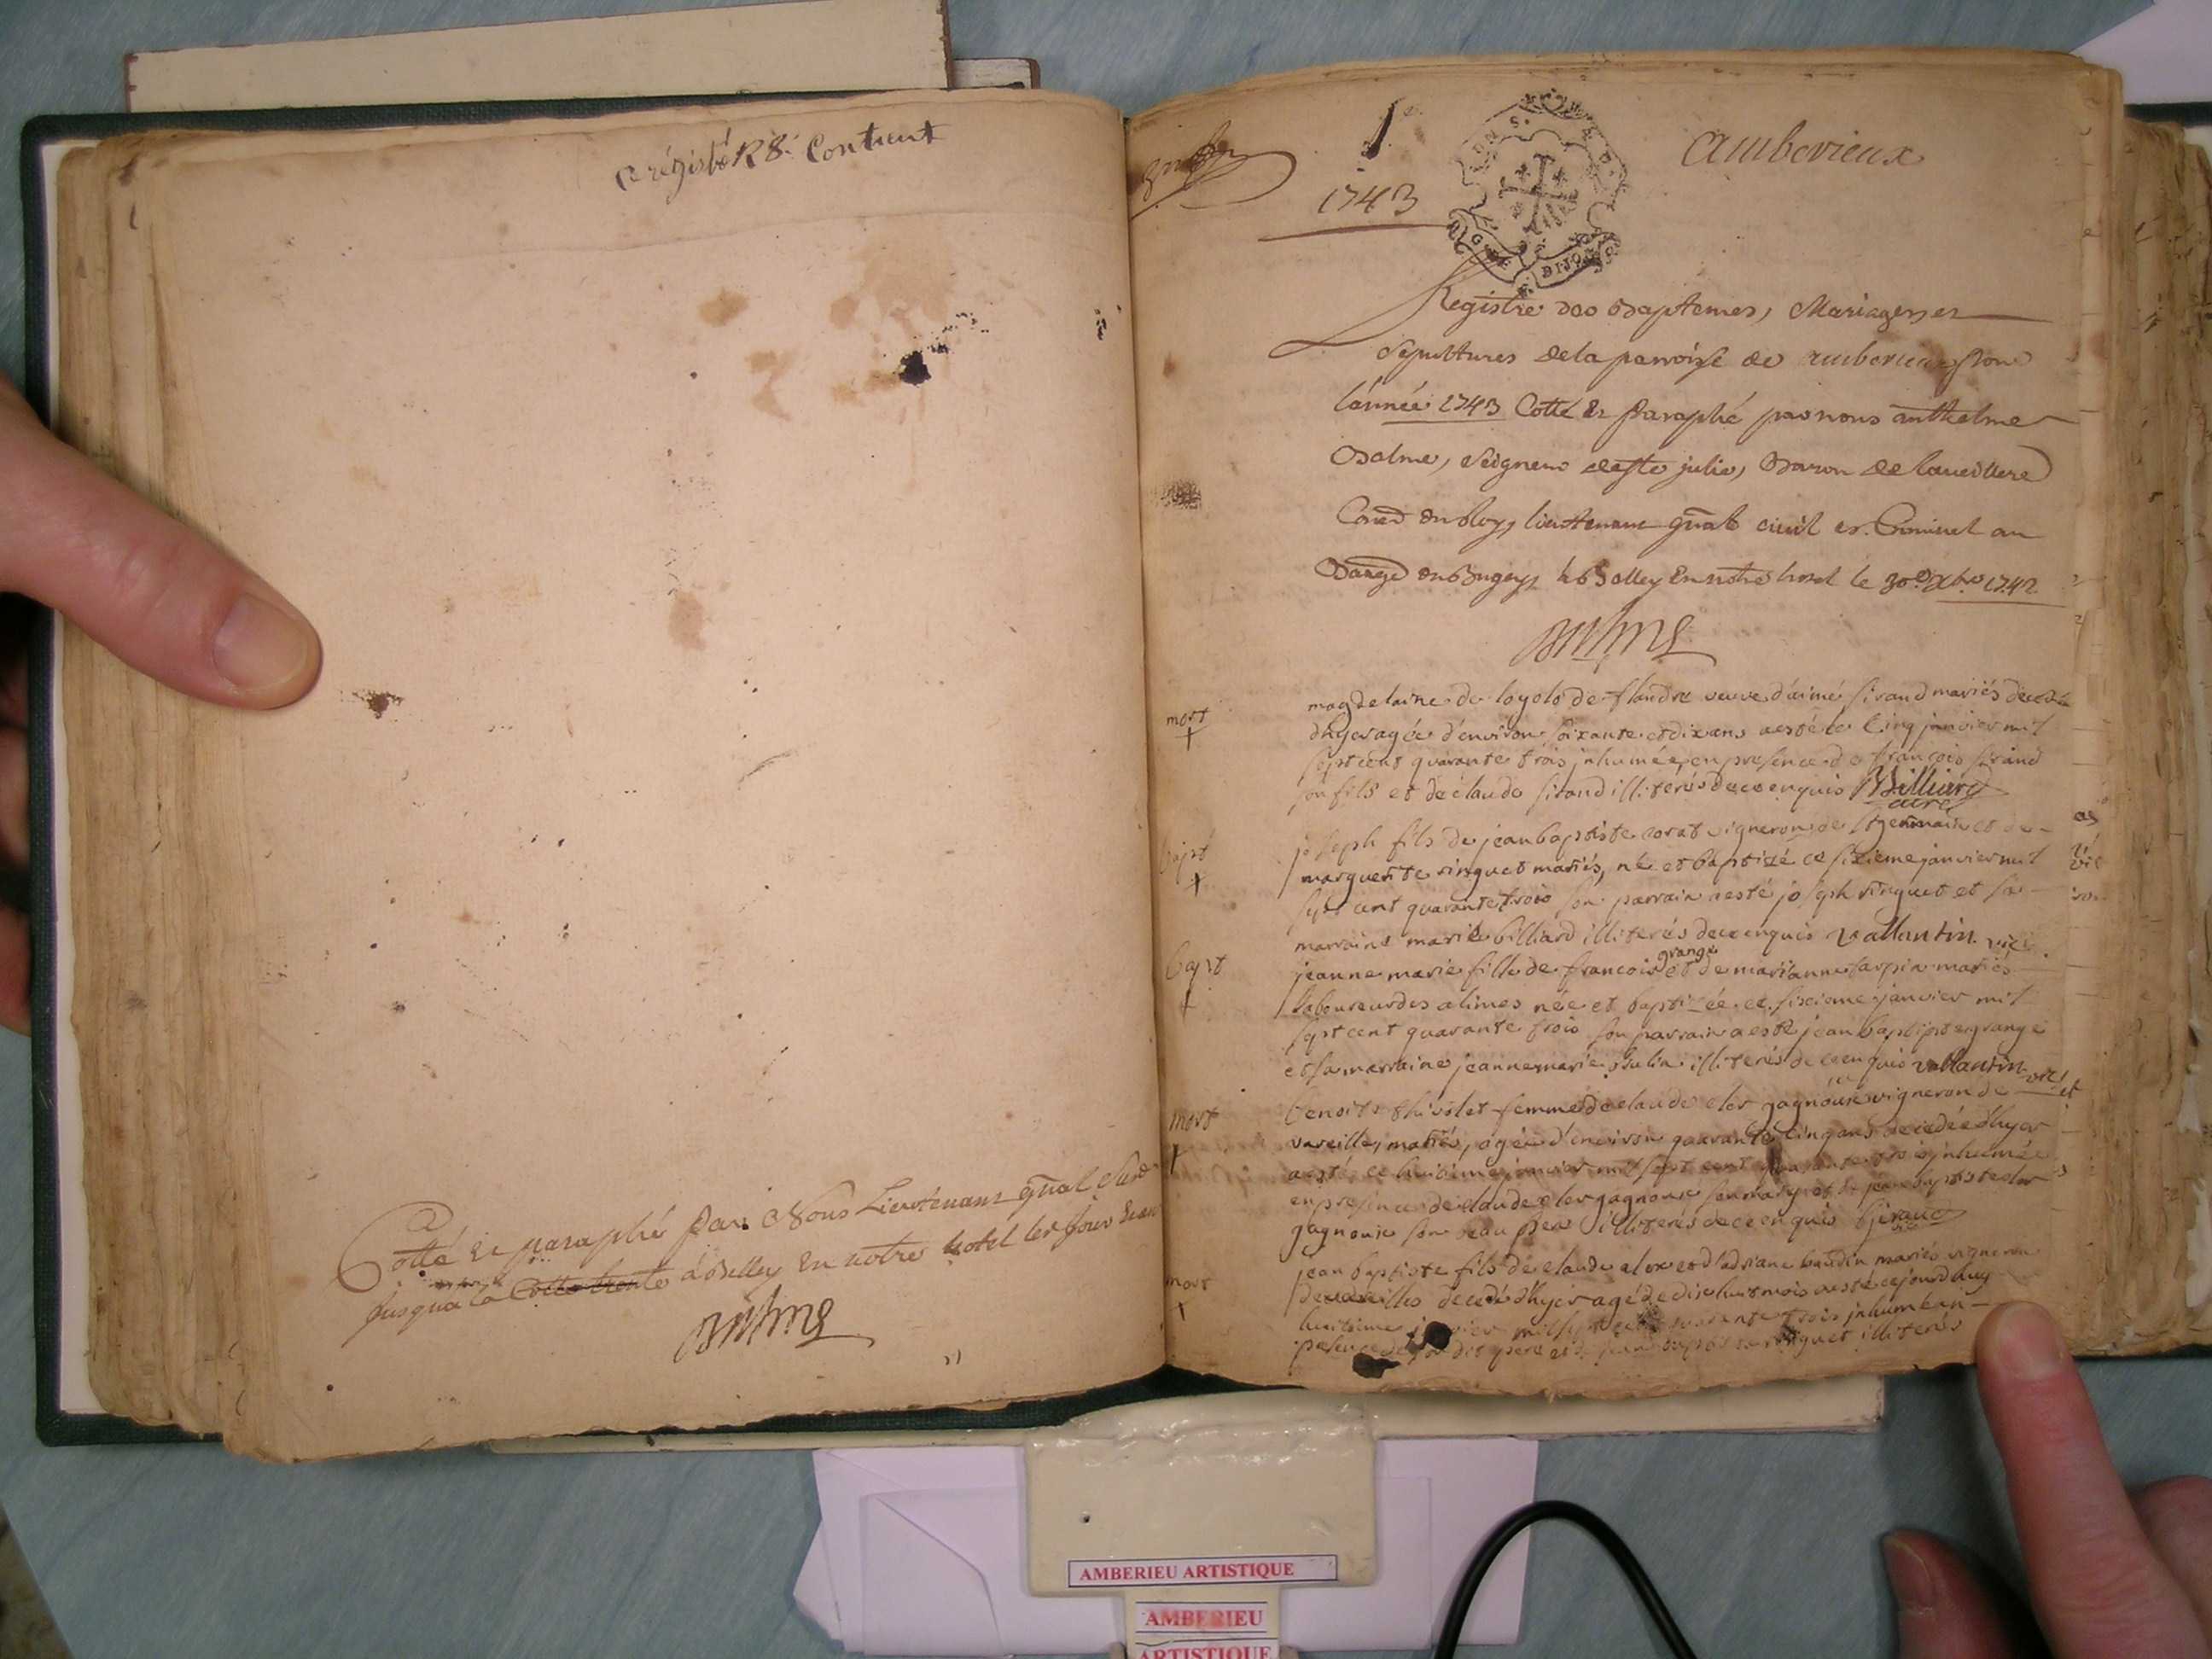 ce régistre R8. Contient
Cotté et paraphé Par Nous Lieutenant gnal
jusqua la à Belley En notre hotel les jour et an
Balme
1e
1743
Amberieux
DIJON
Registre des Baptemes, Mariages, et
Sepultures de la parroisse de amberieux pour
l'année 1743 Cotté et Paraphé par nous anthelme
Balme, Seigneur de Ste julie, Baron de
Coner du Roy, lieutenant gnal civil et Criminel au
Baage du Bugey, à Belley En notre hotel le 30e Xbre 1742
Balme
mort
magdelaine de loyolo de flandre veuve d'aimé sirand mariés décedée
d'hyer agée d'environ soixante et dix ans a esté le cinq janvier mil
sept cent quarante trois inhumée, en presence de françois sirand
son fils et de claude sirand illiterés de ce enquis Billiard
curé
bapt
joseph fils de jean baptiste vigneron de St germain et de
marguerite ringuet mariés, né et baptisé ce sixieme janvier mil
sept cent quarante trois son parrain a esté joseph ringuet et sa
marraine marie billiard illiterés de ce enquis Vallantin vic
bapt
grange
jeanne marie fille de francois et de marianne tarpin mariés
laboureurs des alimes née et baptisée ce sixieme janvier mil
sept cent quarante trois son parrain a esté jean baptiste grange
et sa marraine jeanne marie julin illiterés de ce enquis vallantin vic
mort
benoite thivolet femme de claude clor gagnoux vigneron de
vareille, mariés, agée d'environ quarante cinq ans decedée d'hyer
a esté ce huitieme janvier mil sept cent quarante trois inhumée
en presence de claude clor gagnoux son mary et de jean baptiste clor
gagnoux son beau pere illiterés de ce enquis
mort
jean baptiste fils de claude et d'adriane baudin mariés vigneron
de vareilles decedé d'hyer agé de dix huit mois a esté ce jourd'huy
huitieme janvier mil sept cent quarante trois inhumé en
presence de son dit pere et de jean baptiste ringuet illiterés
AMBERIEU ARTISTIQUE
AMBERIEU
ARTISTIQUE